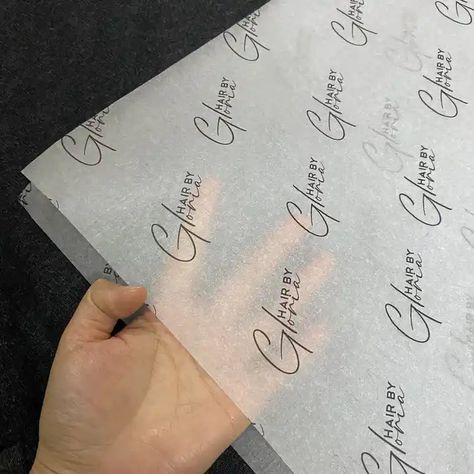 HAIR BY
Gloria
HAIR BY
Gloria
HAIR BY
Gloria
HAIR BY
Gloria
HAIR BY
Gloria
HAIR BY
Gloria
HAIR BY
Gloria
HAIR BY
Gloria
HAIR BY
Gloria
HAIR BY
Gloria
HAIR BY
Gloria
HAIR BY
Gloria